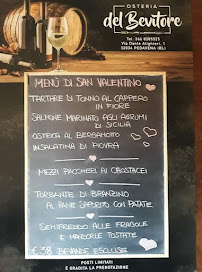 OSTERIA
del Bevitore
Tel. 366 8285525
Via Dante Alighieri, 1
32034 PEDAVENA (BL)
MENÙ DI SAN VALENTINO
TARTARE DI TONNO AL CAPPERO
IN FIORE
SALMONE MARINATO AGLI AGRUMI
DI SICILIA
OSTRICA AL BERGAMOTTO
INSALATINA DI PIOVRA
MEZZI PACCHERI AI CROSTACEI
TURBANTE DI BRANZINO
AL PANE SAPORITO CON PATATE
SEMIFREDDO ALLE FRAGOLE
E MANDORLE TOSTATE
€ 38 BEVANDE ESCLUSE
POSTI LIMITATI
È GRADITA LA PRENOTAZIONE